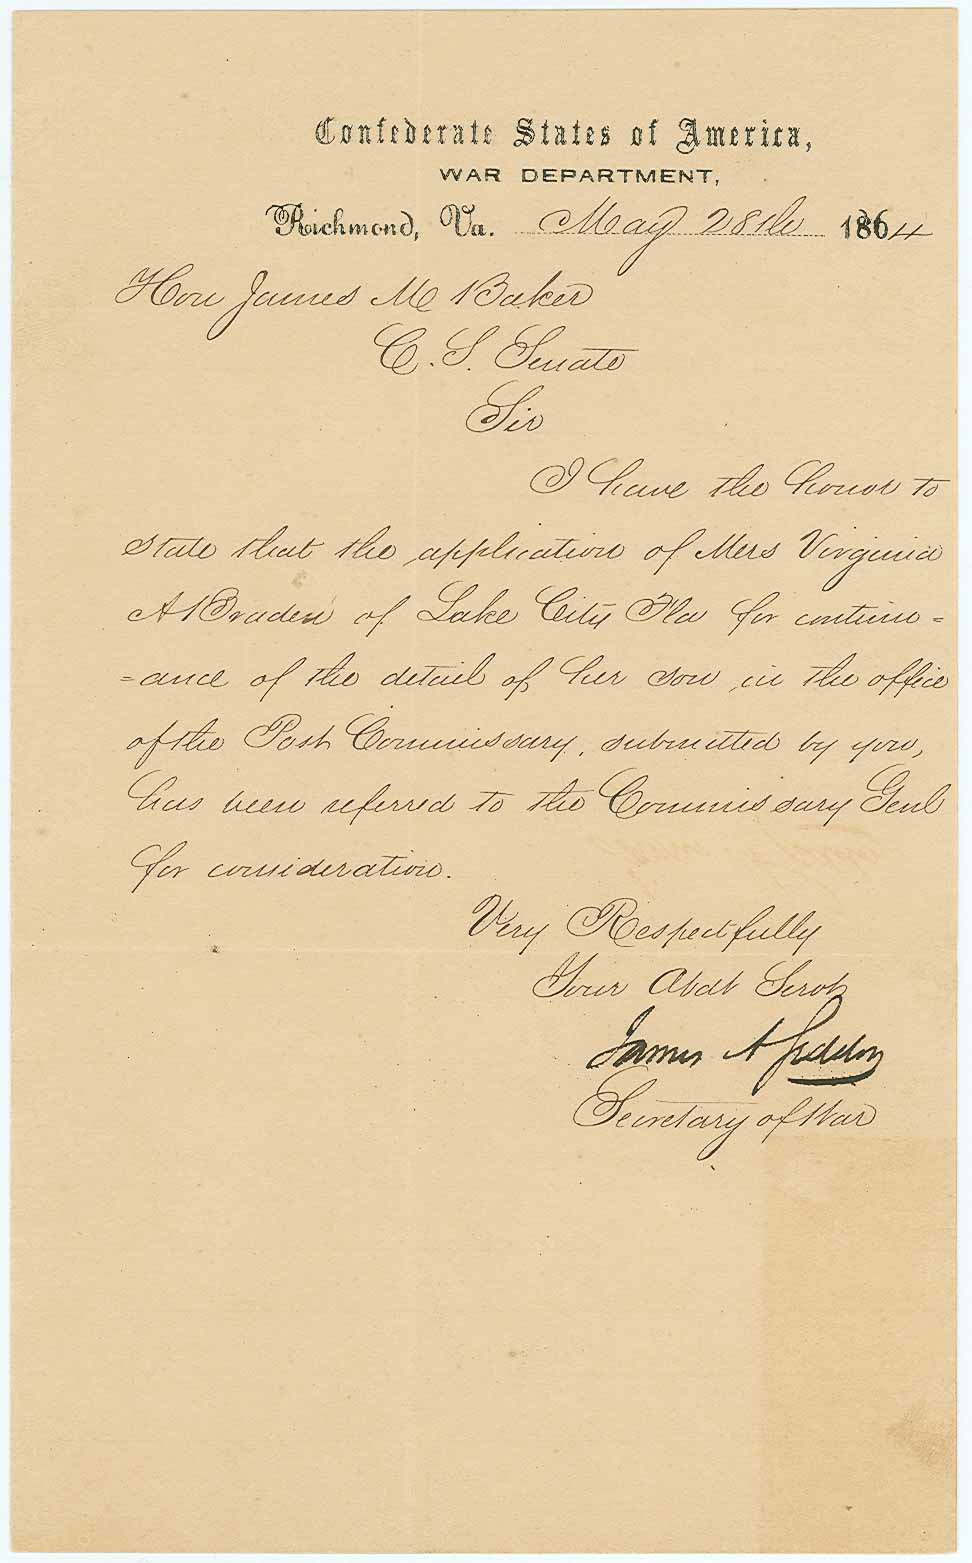 Confederate States of America,
WAR DEPARTMENT,
Richmond, Va. May 28th 1864
Hon James M Baker
C. S. Senate
Sir
I have the honor to
state that the application of Mrs Virginia
A Braden of Lake City Fla for continu=
=ance of the detail of her son in the office
of the Post Commissary, submitted by you,
has been referred to the Commissary Genl
for consideration.
Very Respectfully
Your Obdt Servt
James A Seddon
Secretary of War